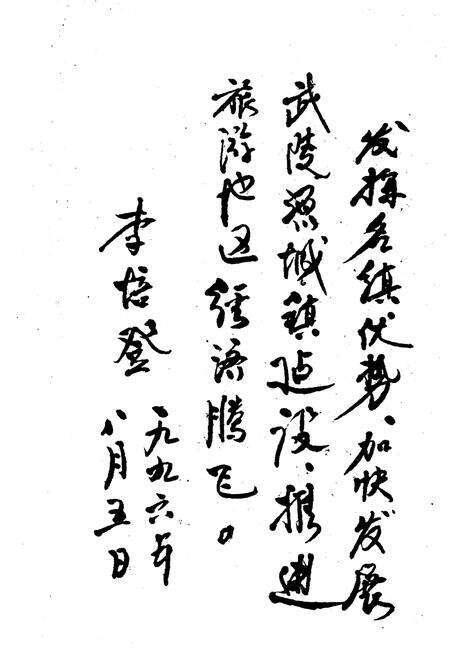 发挥名镇优势、加快发展
武陵源城镇建设、推进
旅游地区经济腾飞。
李培登
一九九六年
八月五日